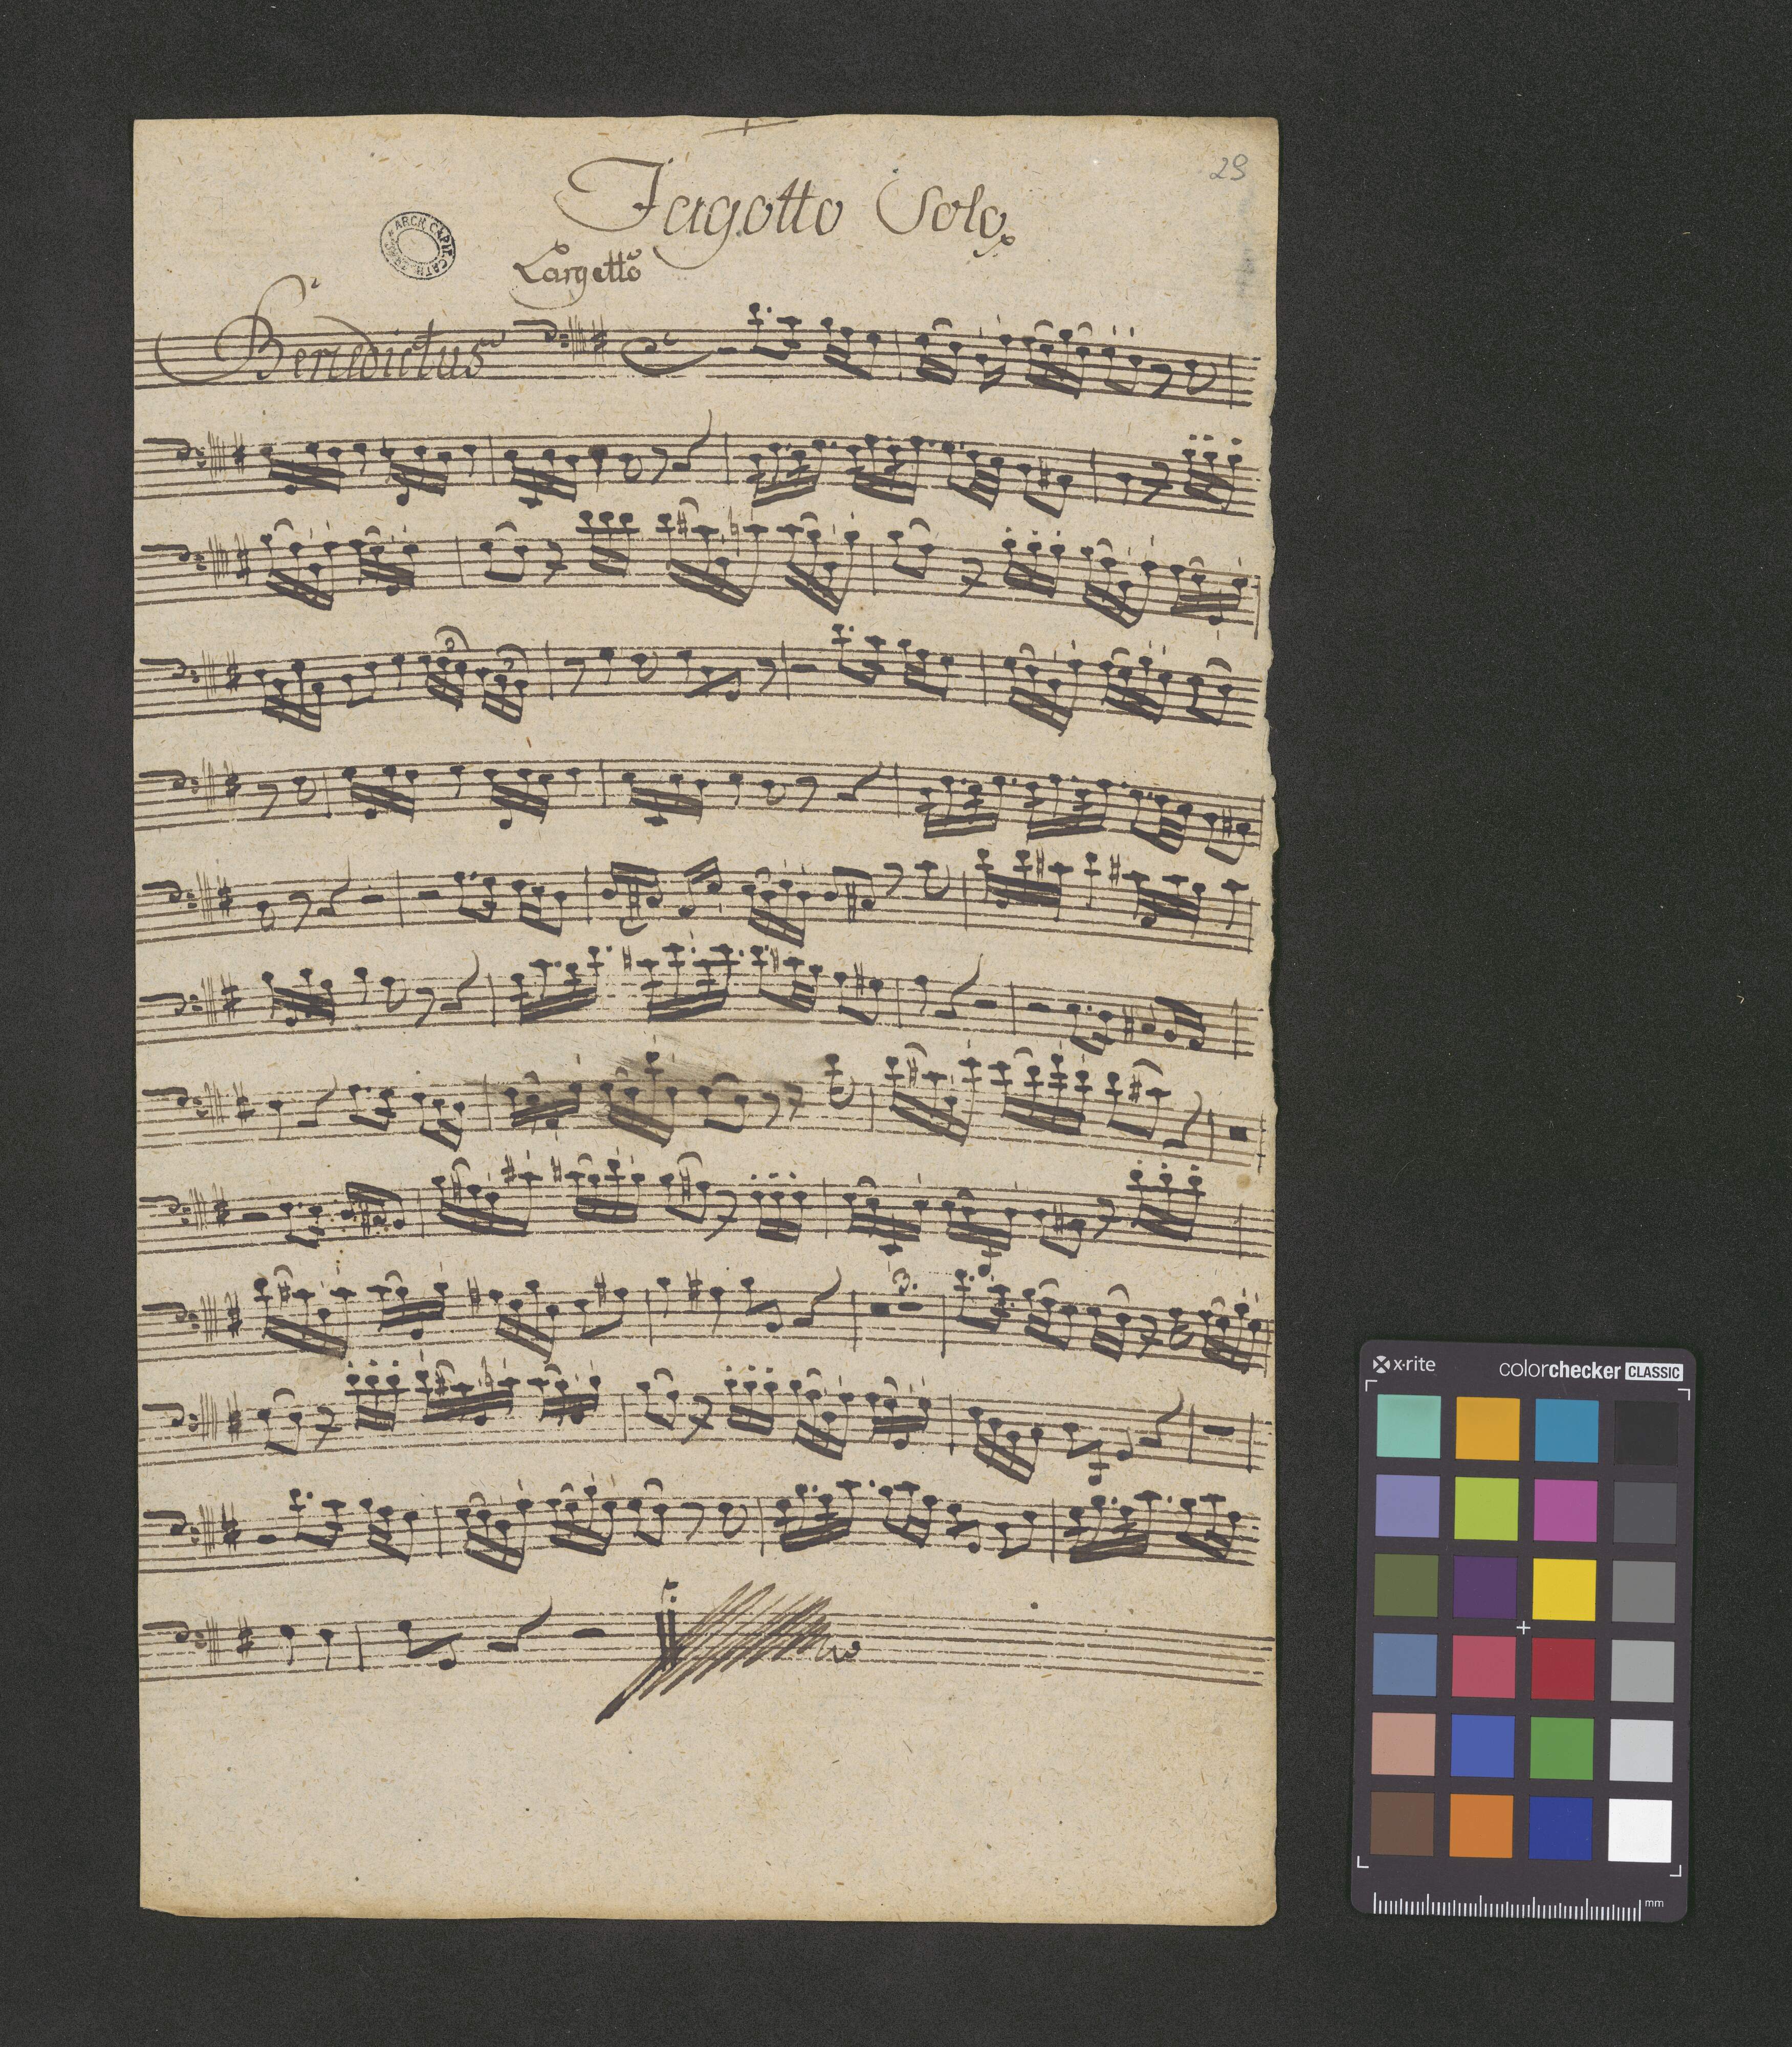 29
Fagotto Solo
ARCH. CAPIT. CATH.
Largetto
Benedictus
3.
x·rite
colorchecker CLASSIC
mm